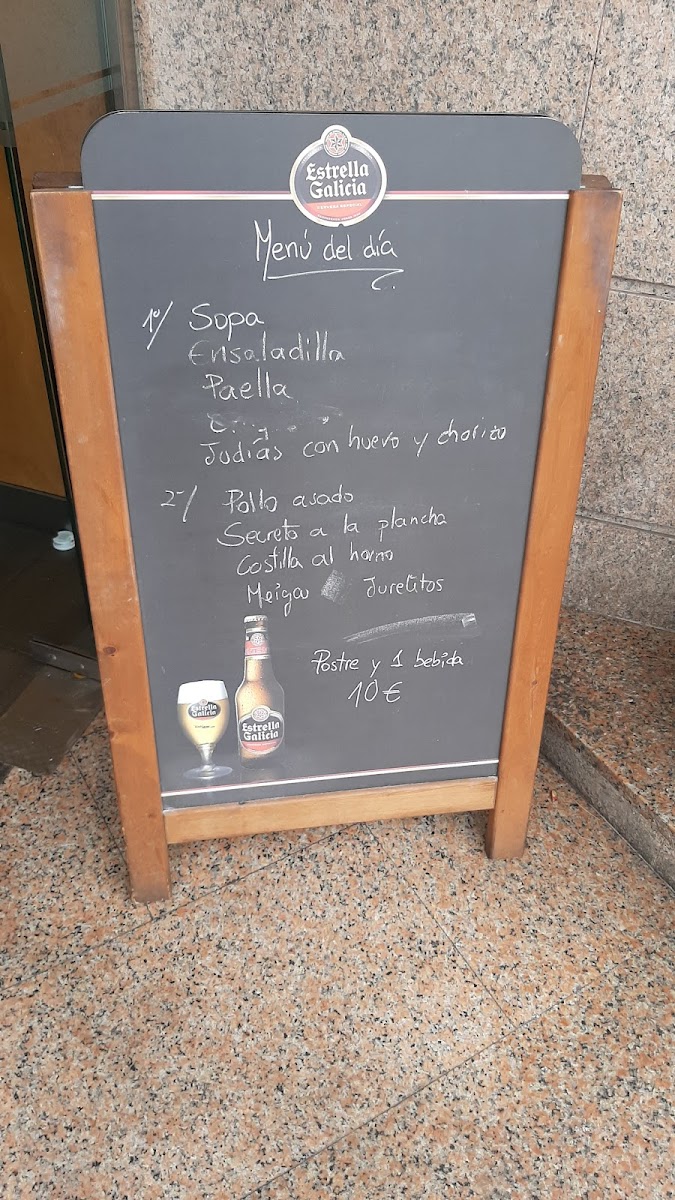 Estrella
Galicia
Menú del día
1º/ Sopa
Ensaladilla
Paella
Judías con huevo y chorizo
2º/ Pollo asado
Secreto a la plancha
Costilla al horno
Meiga Jurelitos
Postre y 1 bebida
10€
Estrella
Galicia
Estrella
Galicia